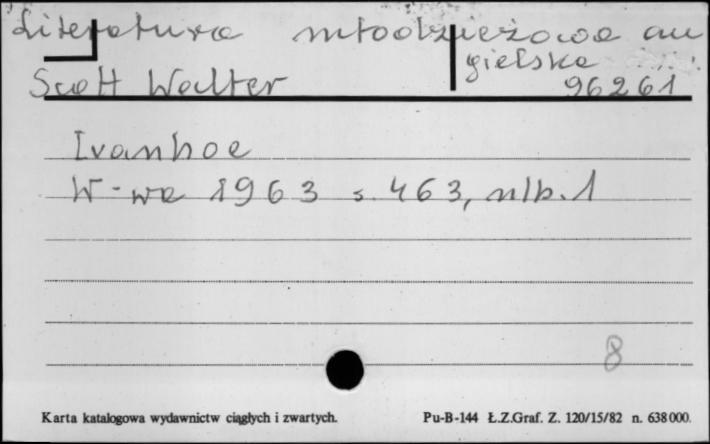 Literatura młodzieżowa an
gielska
Scott Walter 96261
Ivanhoe
W-wa 1963 s. 463, nlb. 1
8
Karta katalogowa wydawnictw ciągłych i zwartych. Pu-B-144 Ł.Z.Graf. Z. 120/15/82 n. 638000.